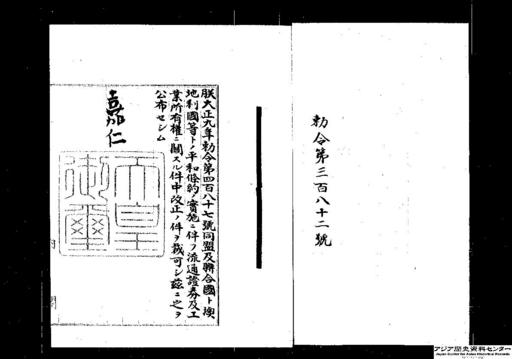 勅令第三百八十二號
朕大正九年勅令第四百八十七號同盟及聯合國ト墺
地利國等トノ平和條約ノ實施ニ伴フ流通證券及工
業所有權ニ關スル件中改正ノ件ヲ裁可シ茲ニ之ヲ
公布セシム
嘉仁
天皇
御璽
アジア歴史資料センター
Japan Center for Asian Historical Records